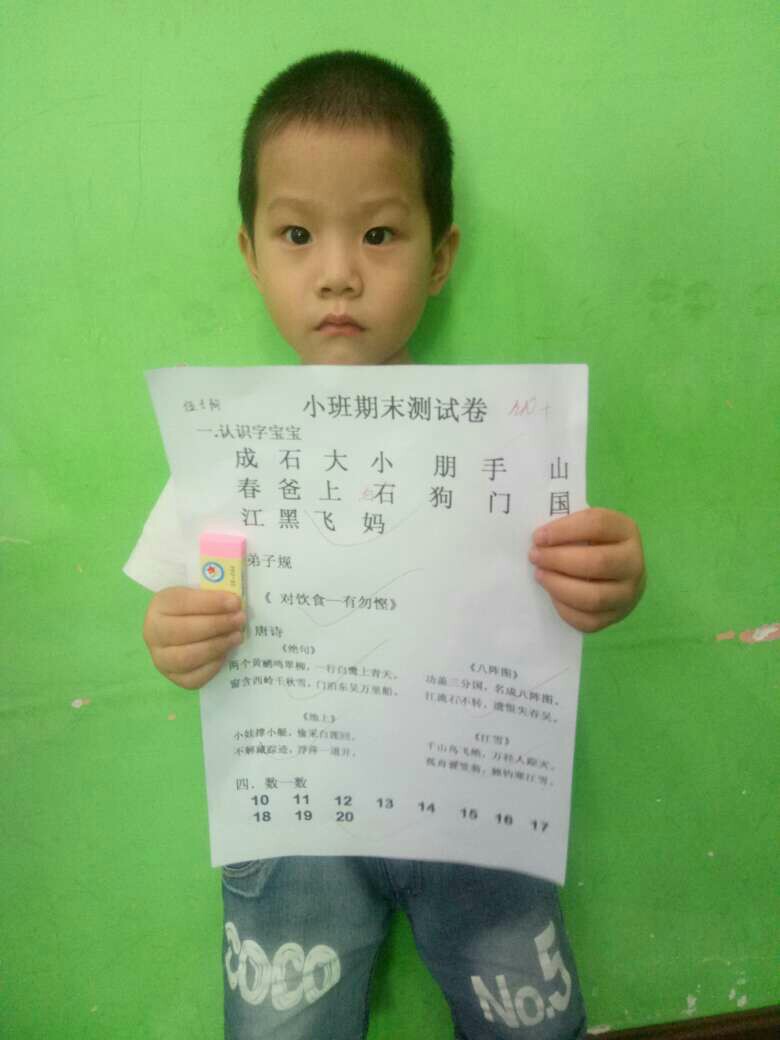 小班期末测试卷
一.认识字宝宝
成 石 大 小 朋 手 山
春 爸 上 石 狗 门 国
江 黑 飞 妈
弟子规
《 对饮食一有勿悭》
唐诗
《绝句》
两个黄鹂鸣翠柳，一行白鹭上青天。
窗含西岭千秋雪，门泊东吴万里船。
《八阵图》
功盖三分国，名成八阵图。
江流石不转，遗恨失吞吴。
《池上》
小娃撑小艇，偷采白莲回。
不解藏踪迹，浮萍一道开。
《江雪》
千山鸟飞绝，万径人踪灭。
孤舟蓑笠翁，独钓寒江雪。
四．数一数
10 11 12 13 14 15 16 17
18 19 20
COCO
No.5